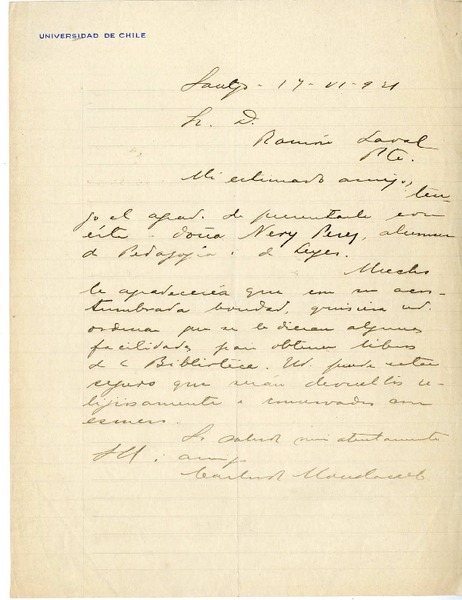 UNIVERSIDAD DE CHILE
Santgo - 17 - VI - 921
Sr. D.
Ramón Laval
Pte.
Mi estimado amigo, ten-
go el agrad. de presentarle con
ésta a doña Nery Perez, alumna
de Pedagogía i de Leyes.
Mucho
le agradecería que con su acos-
tumbrada bondad, quisiera ud.
ordenar que se le dieran algunas
facilidades para obtener libros
de la Biblioteca. Ud. puede estar
seguro que serán devueltos re-
lijiosamente e conservados con
esmero.
Lo saluda mui atentamente
SS. i amigo
Carlos Mondaca C.